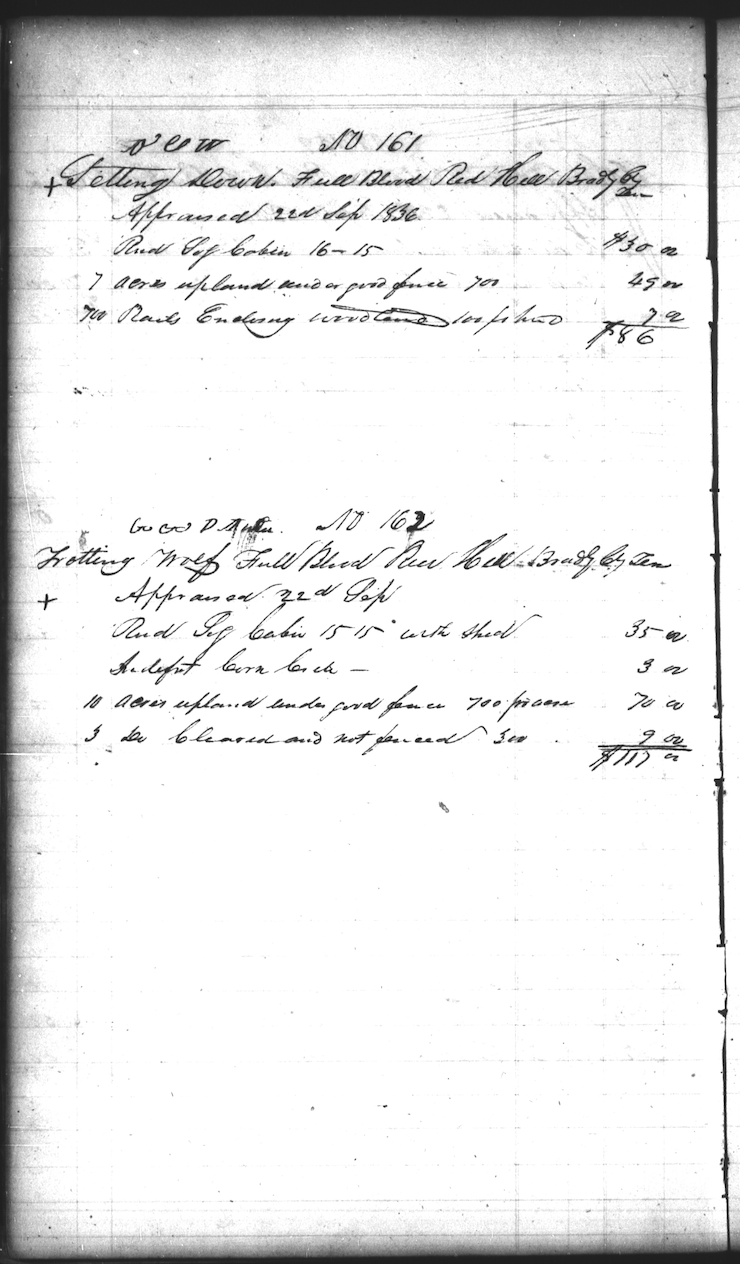 No 161
Setting Down. Full Blood Red Hill Brady Cy Ten
Appraised 22d Sep 1836
Rnd Log Cabin 16-15 $30 00
7 acres upland under good fence 700 49 00
700 Rails Enclosing woodland 100 pr hund 7 00
$86
No 162
Trotting Wolf Full Blood Red Hill Brady Cy Ten
+ Appraised 22d Sep
Rnd Log Cabin 15 15 with shed 35 00
Corn Crib — 3 00
10 acres upland under good fence 700 pr acre 70 00
3 Do Cleared and not fenced 300 9 00
$117 00